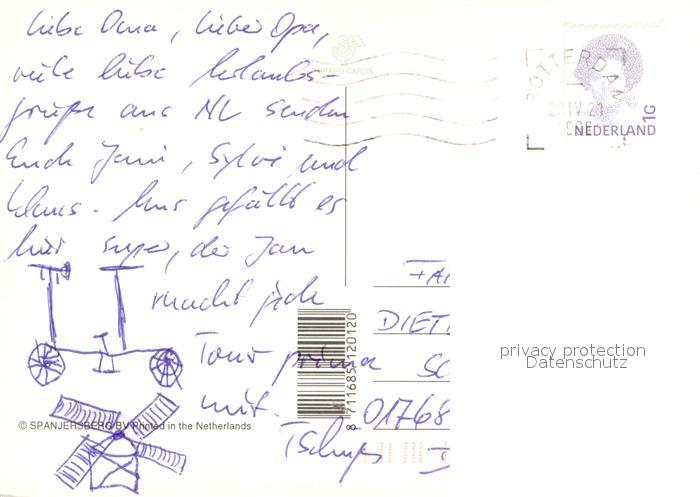 Liebe Oma, lieber Opa,
viele liebe Urlaubs-
grüße aus NL senden
Euch Jani, Sylvi und
Klaus. Uns gefällt es
hier super, der Jan
macht jede
Tour prima
mit.
Tschüss
SPARO CARDS
ROTTERDAM
NEDERLAND
1G
FAM
DIET
SC
01768
D
8 711685 120120
privacy protection
Datenschutz
© SPANJERSBERG BV Printed in the Netherlands